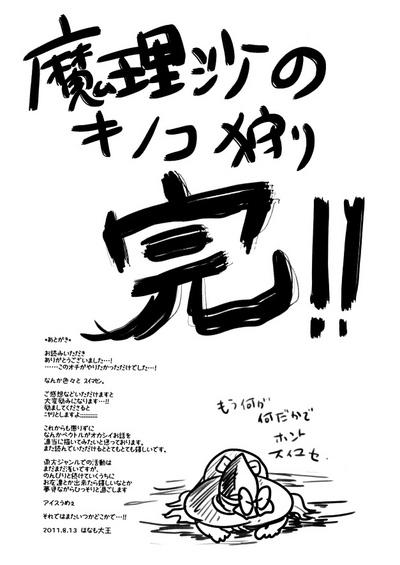 魔理沙の
キノコ狩り
完!!
*あとがき*
お読みいただき
ありがとうございました…!
……このオチがやりたかっただけでした…!
なんか色々と スイマセン。
ご感想などいただけますと
大変励みになります…!!
励ましてくださると
ニヤリとしますよ
これからも懲りずに
なんかベクトルがオカシイお話を
適当に描いてみたいと思っております。
また読んでいただけるととてもとても嬉しいです。
東方ジャンルでの活動は
まだまだ浅いですが、
のんびりと続けていくうちに
お友達とか出来たら嬉しいなとか
夢見ながらひっそりと過ごします
アイスうめぇ
それではまたいつかどこかで…!!
2011.8.13 はなも大王
もう何が
何だかで
ホント
スイマセ